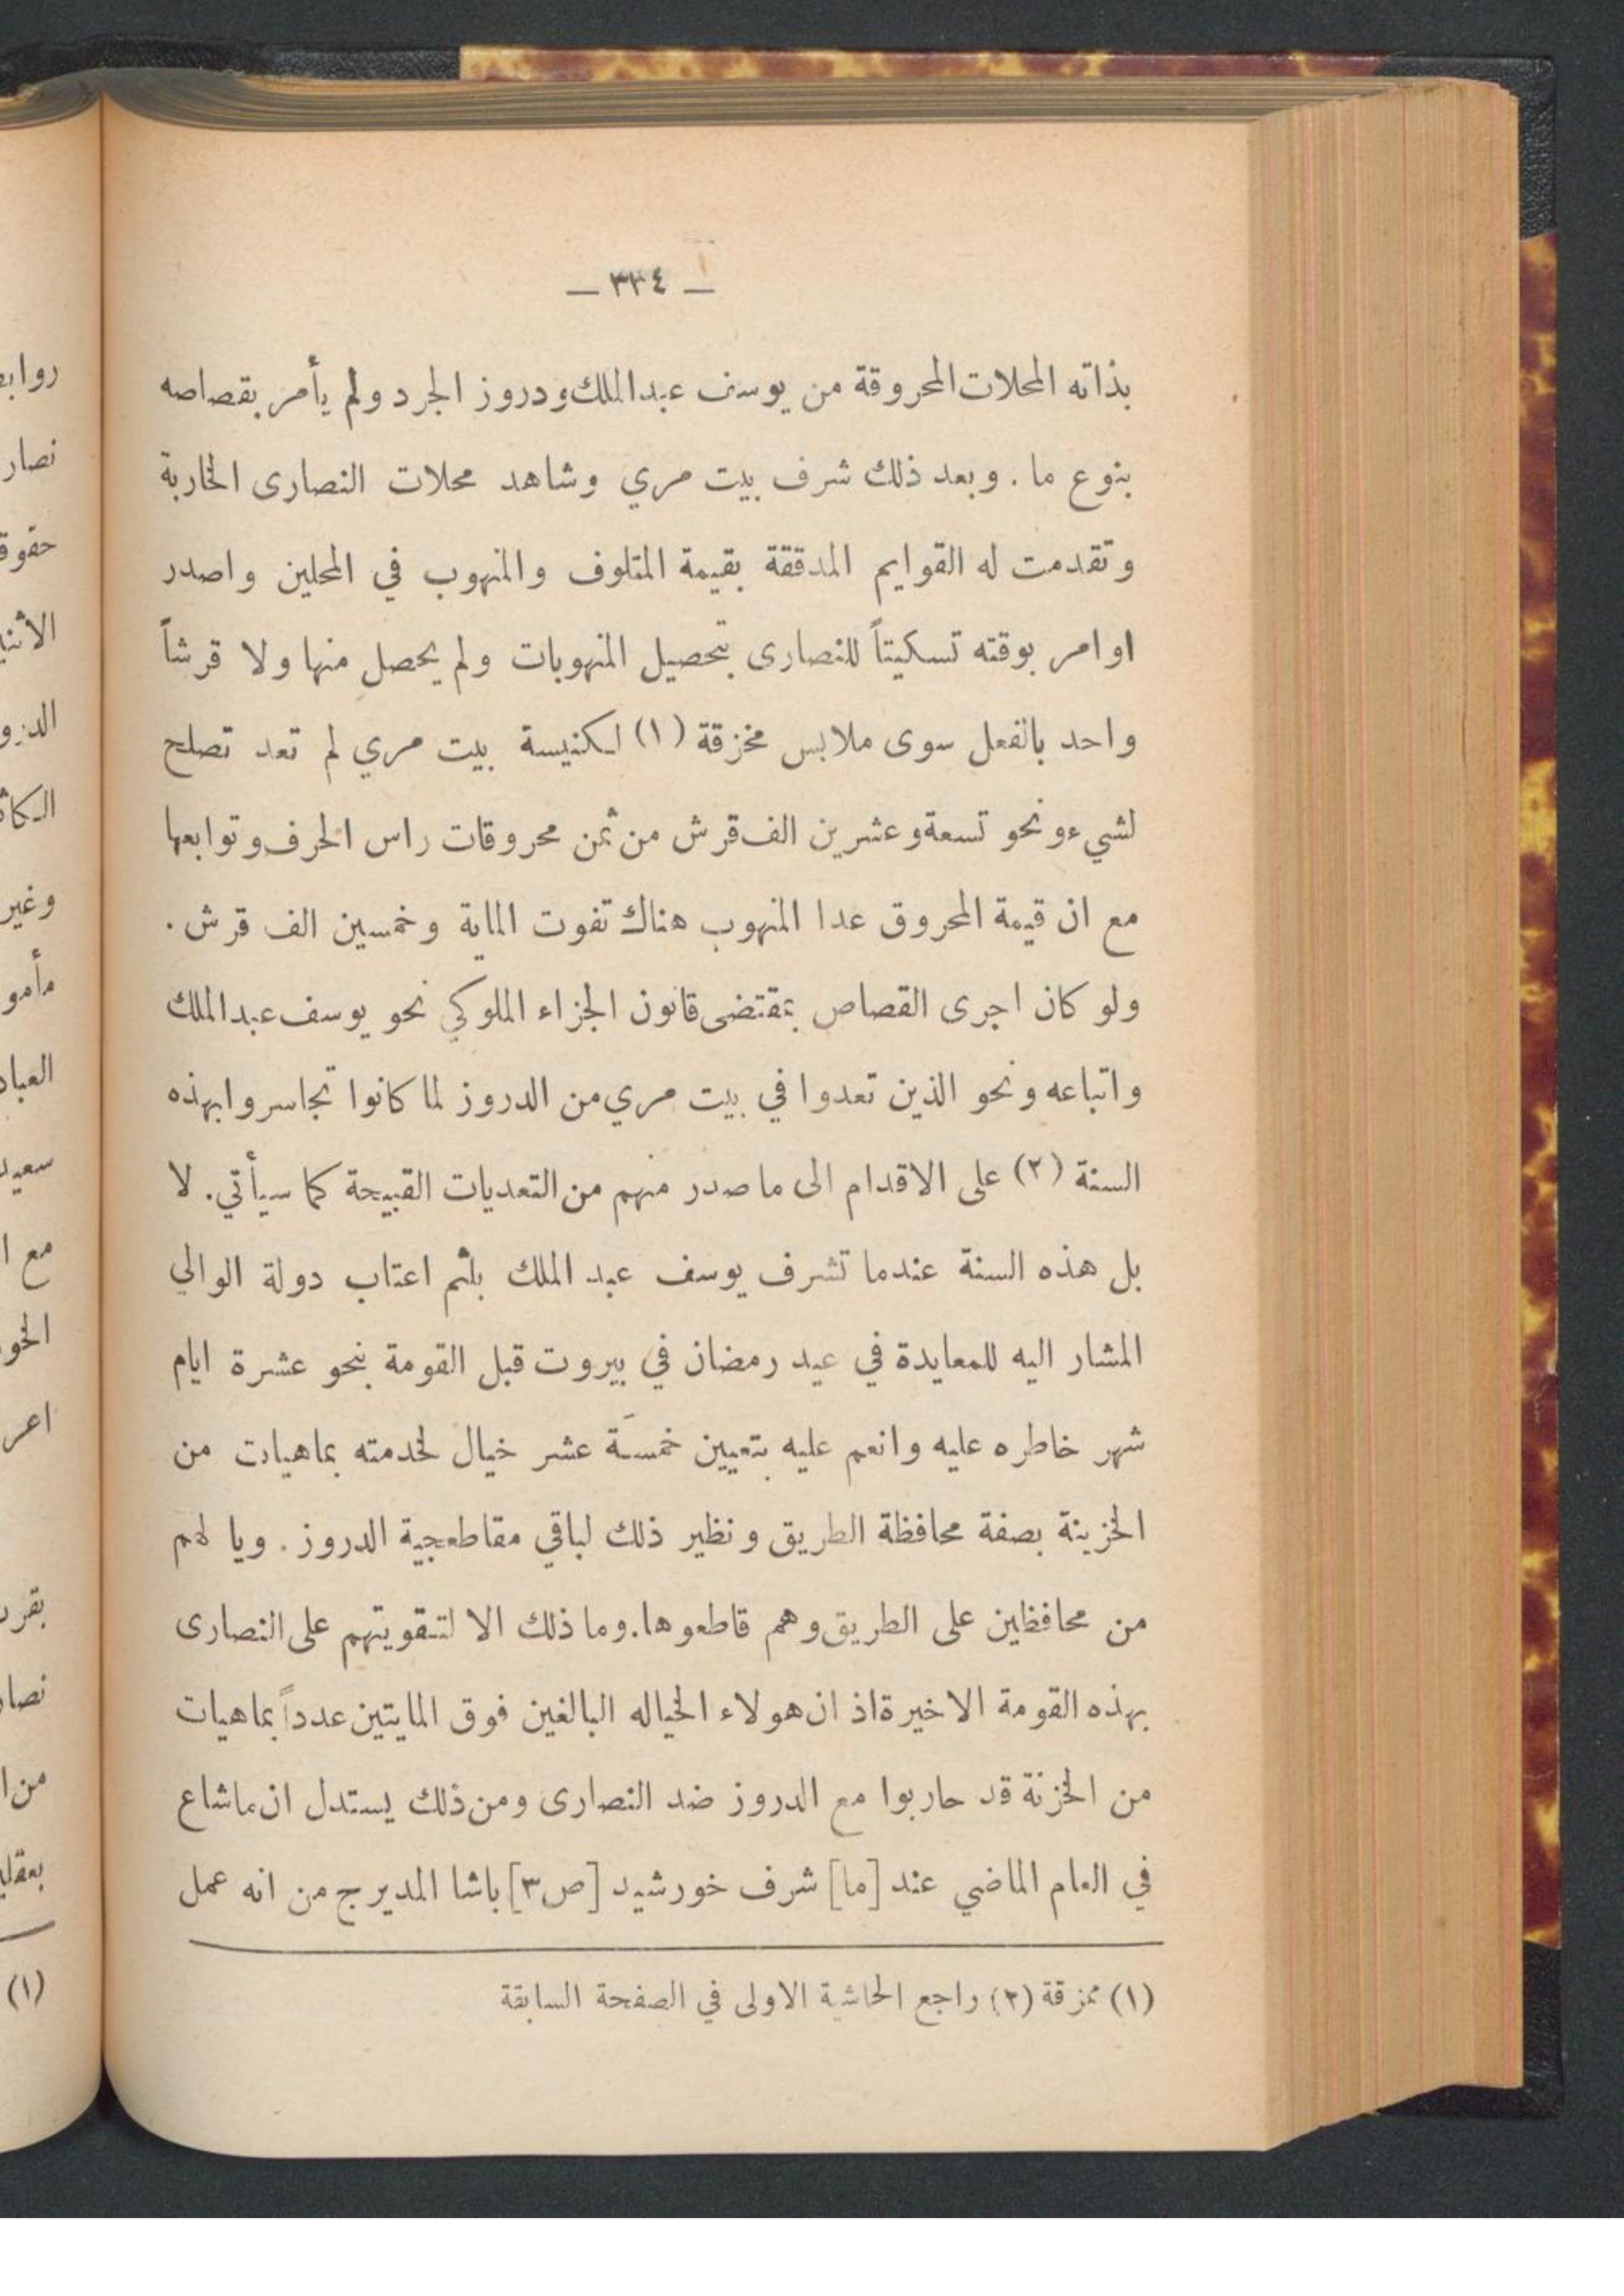 — ٣٣٤ —
بذاته المحلات المحروقة من يوسف عبد الملك ودروز الجرد ولم يأمر بقصاصه
بنوع ما . وبعد ذلك شرف بيت مري وشاهد محلات النصارى الخاربة
وتقدمت له القوايم المدققة بقيمة المتلوف والمنهوب في المحلين واصدر
اوامر بوقته تسكيتاً للنصارى بتحصيل المنهوبات ولم يحصل منها ولا قرشاً
واحد بالفعل سوى ملابس مخزقة (١) لكنيسة بيت مري لم تعد تصلح
لشيء ونحو تسعة وعشرين الف قرش من ثمن محروقات راس الحرف وتوابعها
مع ان قيمة المحروق عدا المنهوب هناك تفوت الماية وخمسين الف قرش .
ولو كان اجرى القصاص بمقتضى قانون الجزاء الملوكي نحو يوسف عبد الملك
واتباعه ونحو الذين تعدوا في بيت مري من الدروز لما كانوا تجاسروا بهذه
السنة (٢) على الاقدام الى ما صدر منهم من التعديات القبيحة كما سيأتي . لا
بل هذه السنة عندما تشرف يوسف عبد الملك بلثم اعتاب دولة الوالي
المشار اليه للمعايدة في عيد رمضان في بيروت قبل القومة بنحو عشرة ايام
شهر خاطره عليه وانعم عليه بتعيين خمسة عشر خيال لخدمته بماهيات من
الخزينة بصفة محافظة الطريق ونظير ذلك لباقي مقاطعجية الدروز . ويا لهم
من محافظين على الطريق وهم قاطعوها . وما ذلك الا لتقويتهم على النصارى
بهذه القومة الاخيرة اذ ان هولاء الخياله البالغين فوق المايتين عدداً بماهيات
من الخزنة قد حاربوا مع الدروز ضد النصارى ومن ذلك يستدل ان ما شاع
في العام الماضي عند [ما] شرف خورشيد [ص٣] باشا المديرج من انه عمل
(١) ممزقة (٢) راجع الحاشية الاولى في الصفحة السابقة